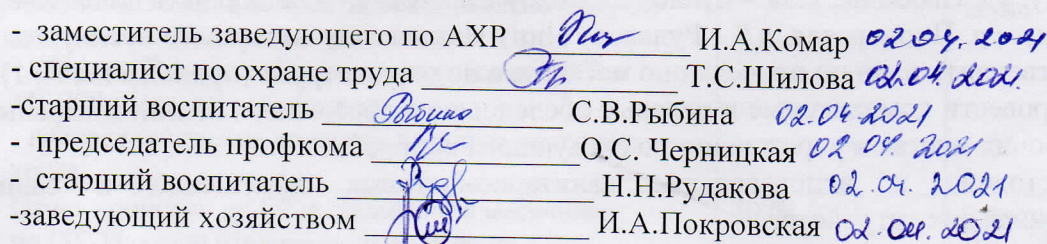 - заместитель заведующего по АХР И.А.Комар 02.04.2021
- специалист по охране труда Т.С.Шилова 02.04.2021
-старший воспитатель Рыбина С.В.Рыбина 02.04.2021
- председатель профкома О.С. Черницкая 02.04.2021
- старший воспитатель Н.Н.Рудакова 02.04.2021
-заведующий хозяйством И.А.Покровская 02.04.2021